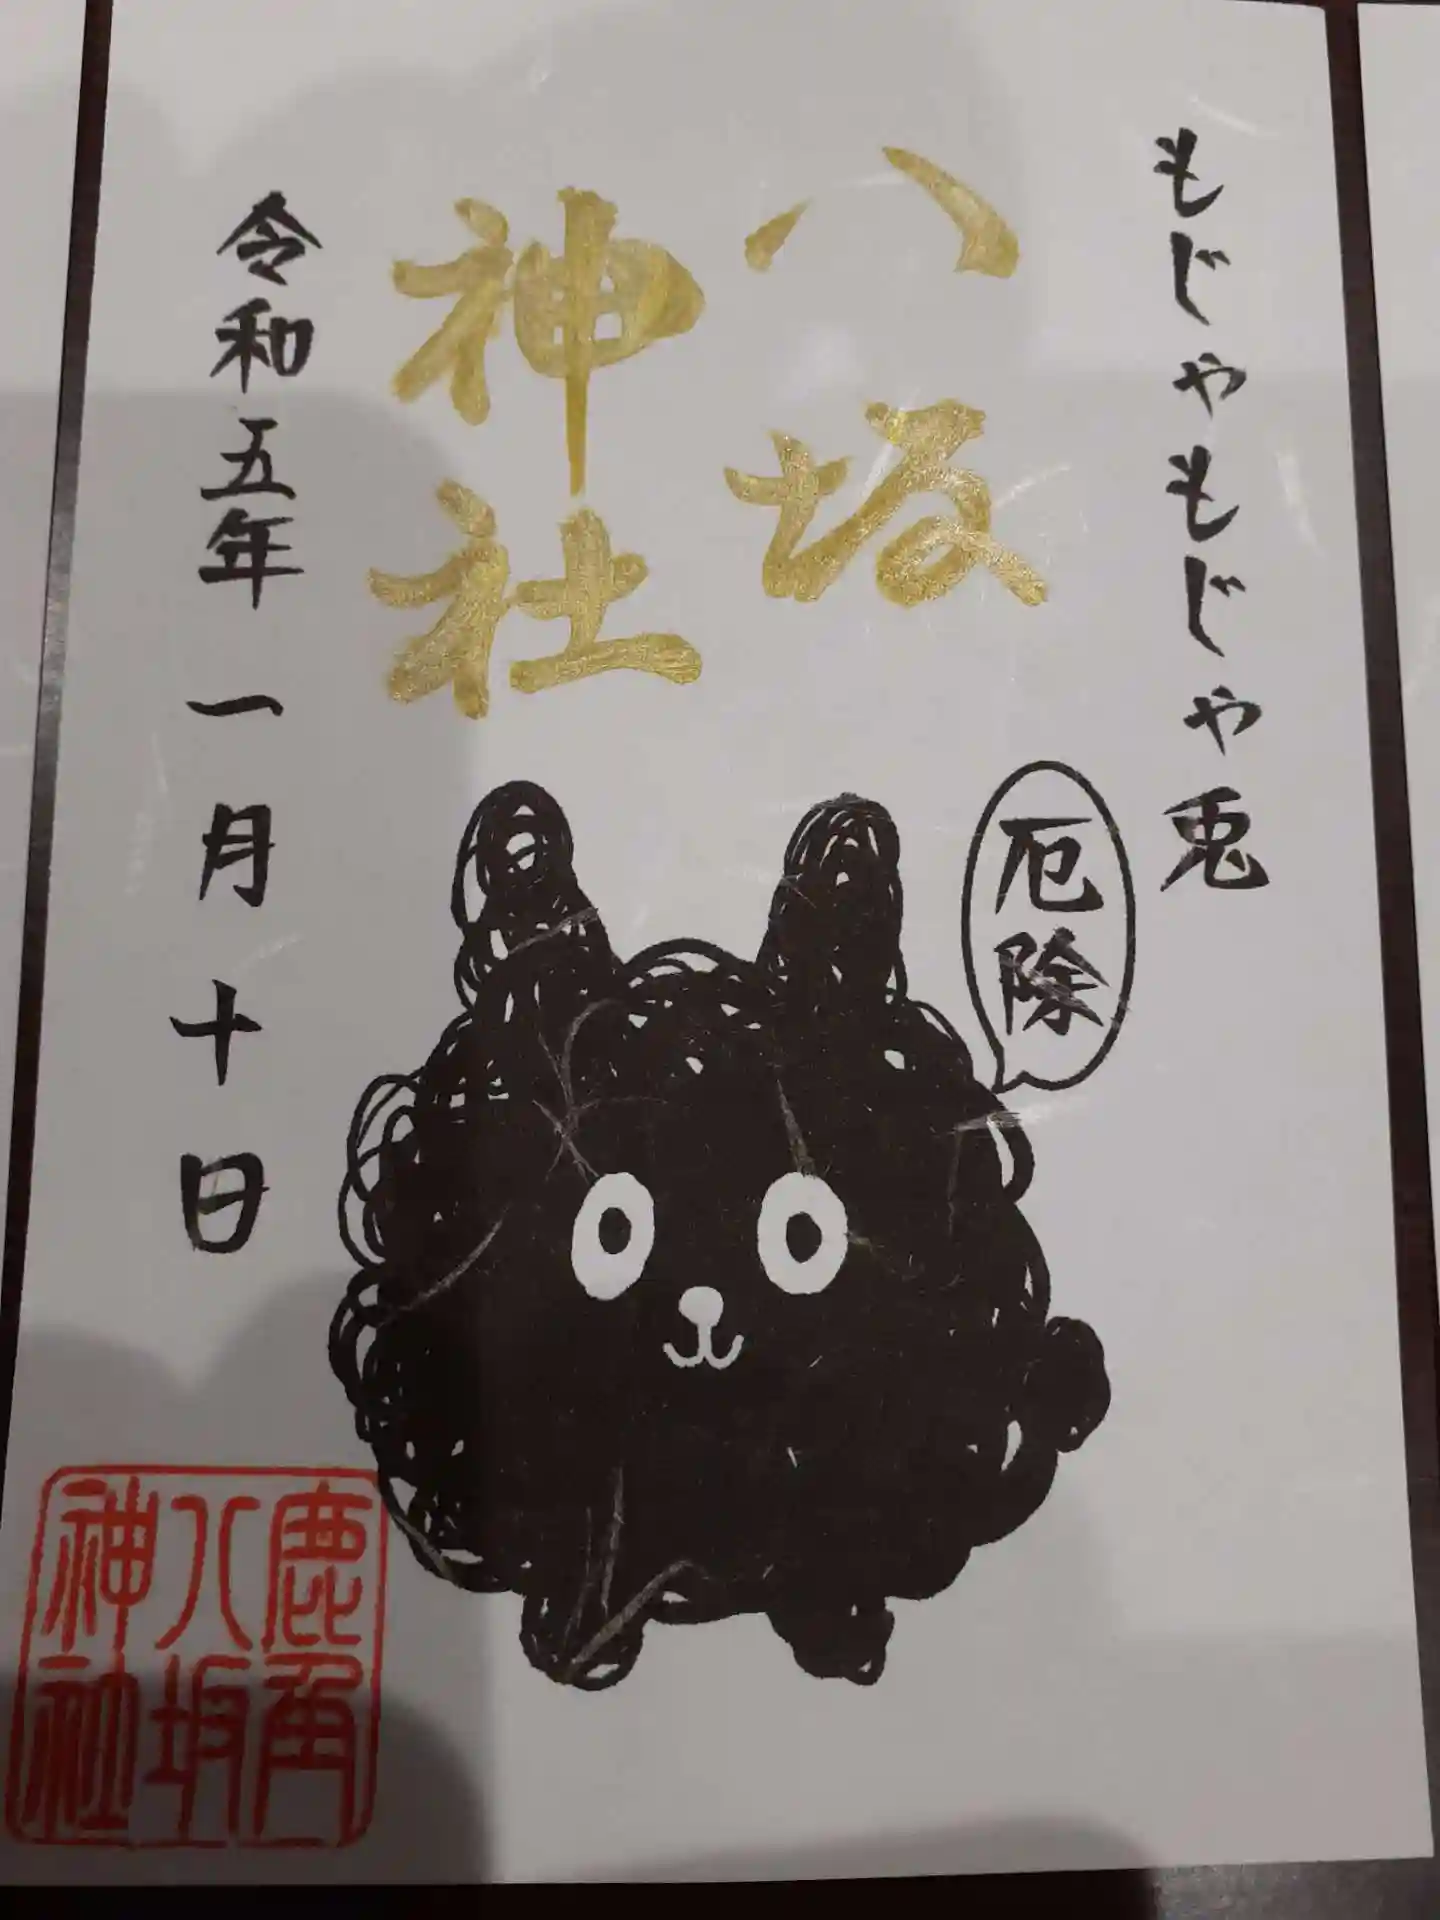 もじゃもじゃ兎
厄除
八坂
神社
令和五年一月十日
鹿角
八坂
神社